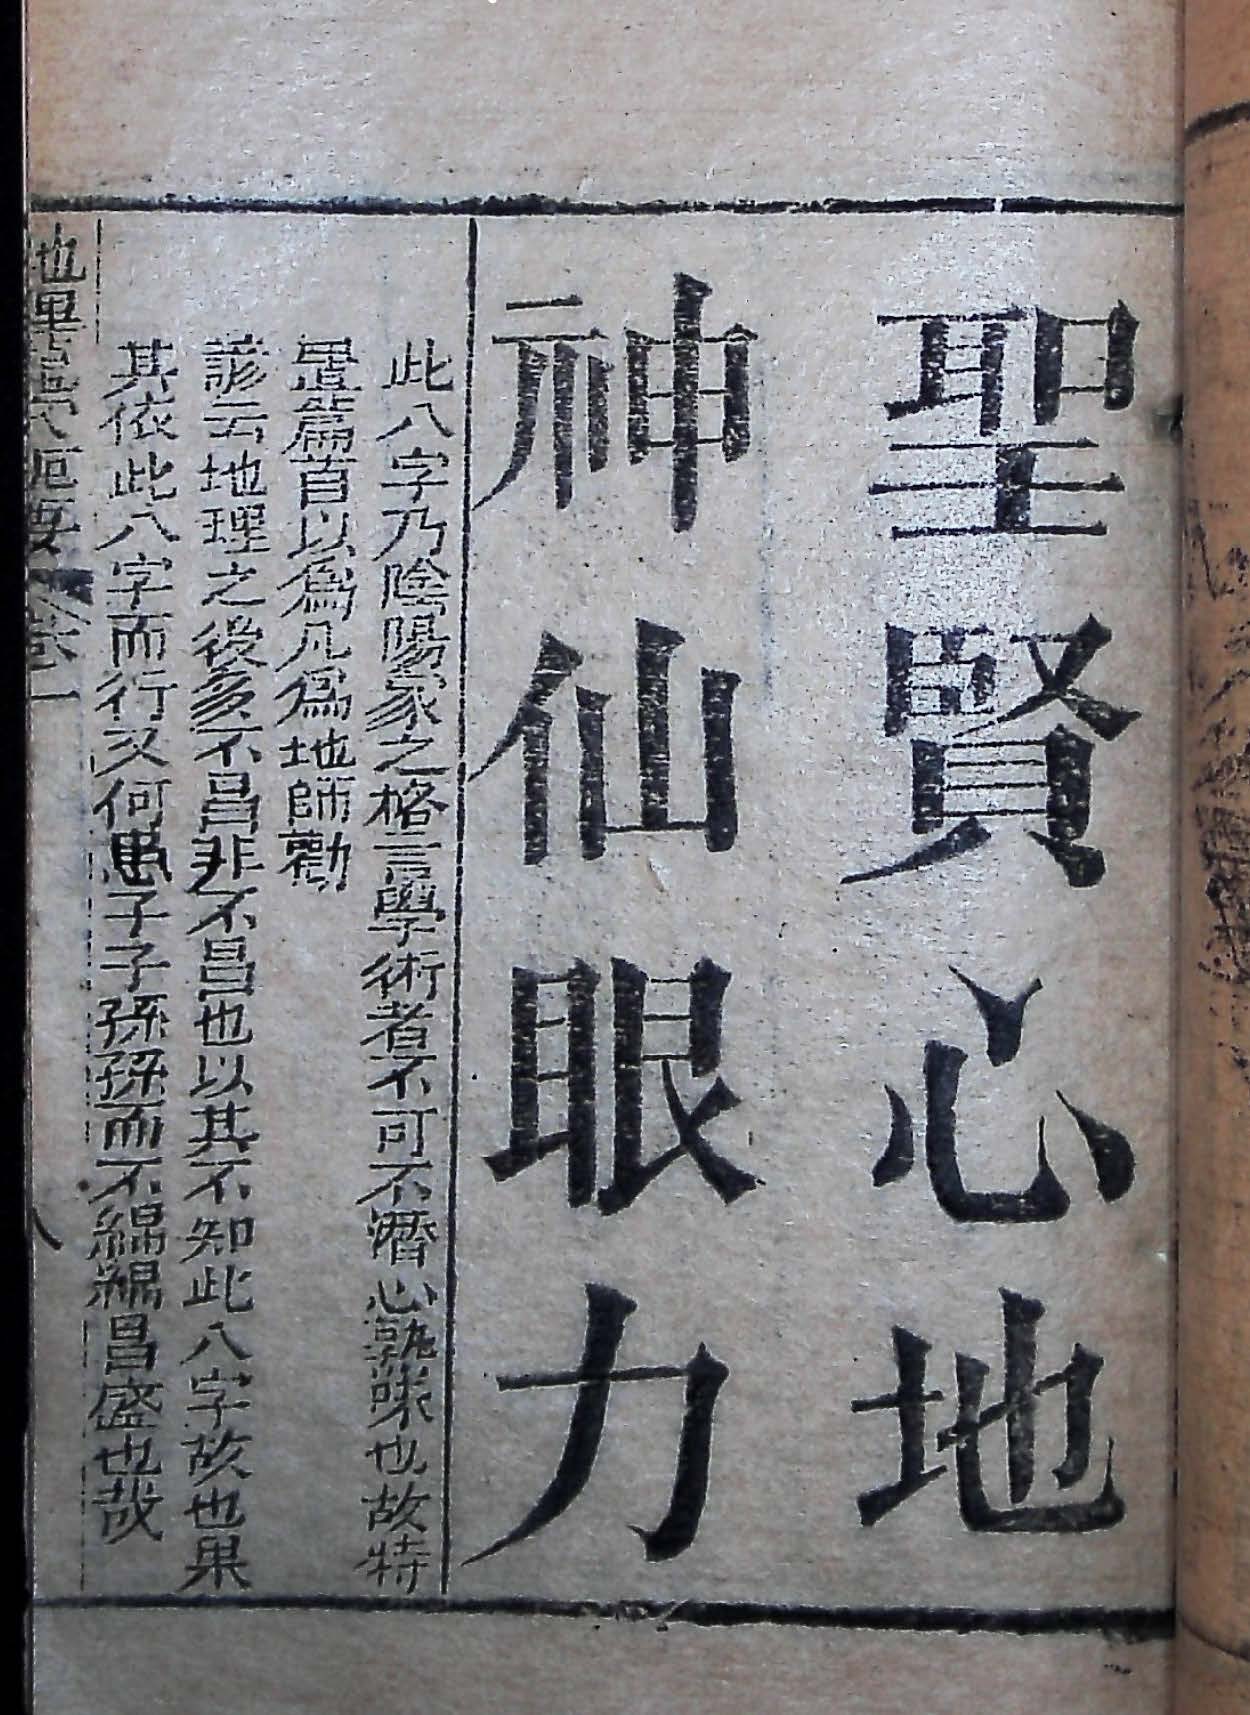 聖賢心地
神仙眼力
此八字乃陰陽家之格言學術者不可不潛心熟味也故特
置篇首以為凡為地師勸
諺云地理之後多不昌非不昌也以其不知此八字故也果
其依此八字而行又何患子子孫孫而不綿綿昌盛也哉
卷一
八